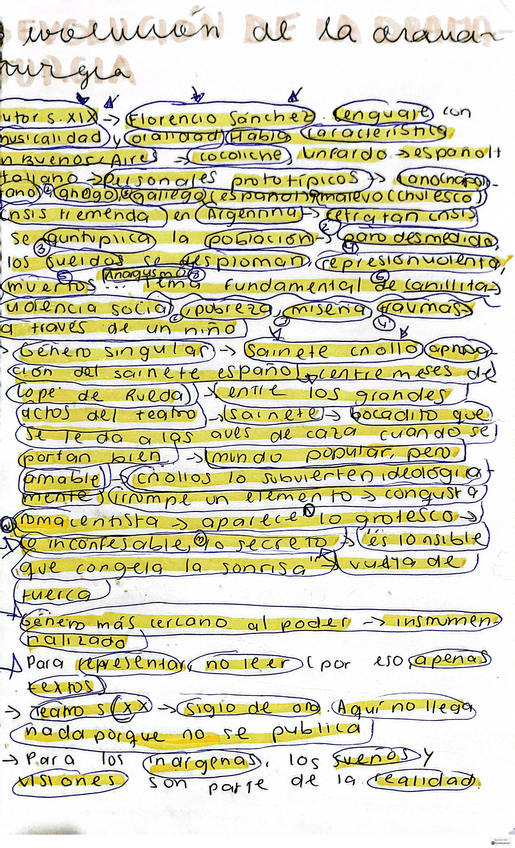 evolución de la drama-
turgia
utor s. XIX → Florencio Sánchez. Lenguaje con
musicalidad y oralidad, fabla característica
n Buenos Aires → cocoliche lunfardo → español it
taliano → Personales prototípicos → ① anocnapol-
tano ② gnego ③ gallego (español) malevo (chulesco)
crisis tremenda en Argentina → retratan crisis
se quntuplica la población → ② paro desmedido,
③ los sueldos se desploman, ④ represión violenta,
⑤ muertos ... Anarquismo Tema fundamental de canillita,
violencia social, pobreza, miseria, traumas
a través de un niño
→ Género singular → Sainete criollo apropia-
ción del sainete español, (entremeses de
Lope de Rueda) → entre los grandes
actos del teatro → (sainete → bocadito que
se le da a las aves de caza cuando se
portan bien → mundo popular, pero
amable → criollos lo subvierten ideológica-
mente, irrumpe un elemento → congusta
roma centista → aparece lo grotesco →
lo inconfesable, lo secreto → "és lo risible
que congela la sonrisa" → vuelta de
tuerca
→ Género más cercano al poder → instrumen-
talizado
→ Para representar, no leer (por eso, apenas
textos)
→ Teatro s. XX → siglo de oro. Aquí no llega
nada porque no se publica
→ Para los indígenas, los sueños y
visiones son parte de la realidad.